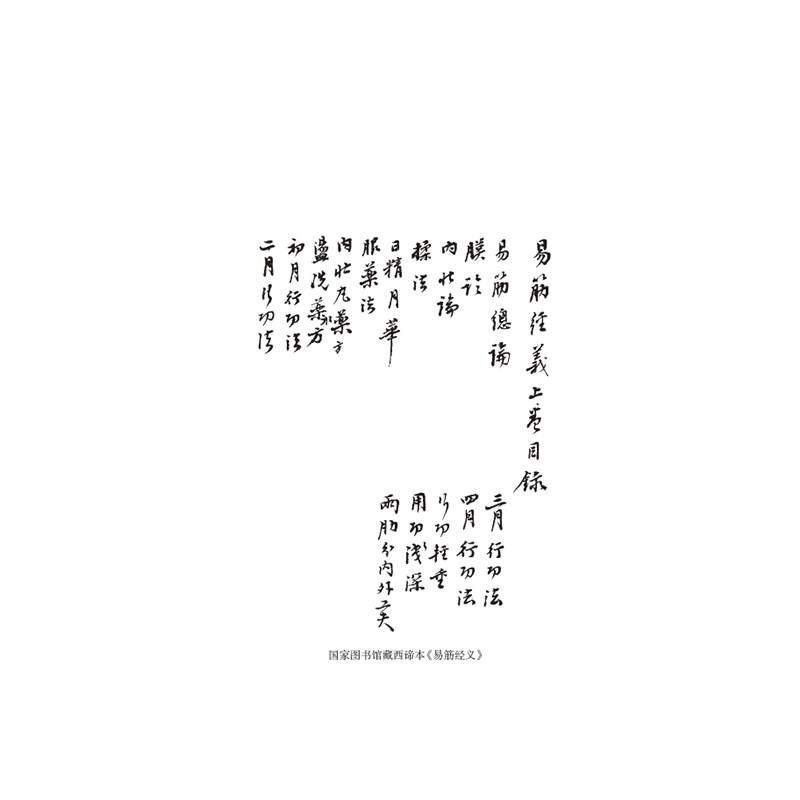 易筋経義上卷目録
易筋總論
膜論
内壮論
揉法
日精月華
服藥法
内壮丸藥方
盪洗藥水方
初月行功法
二月行功法
三月行功法
四月行功法
行功軽重
用功浅深
兩肋分内外功夫
国家图书馆藏西谛本《易筋经义》